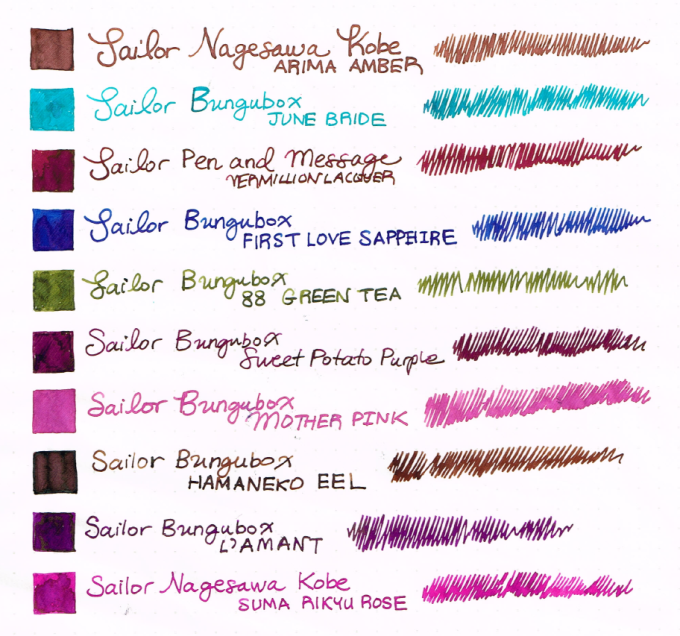 Sailor Nagesawa Kobe
ARIMA AMBER
Sailor Bungubox
JUNE BRIDE
Sailor Pen and Message
VERMILLION LACQUER
Sailor Bungubox
FIRST LOVE SAPPHIRE
Sailor Bungubox
88 GREEN TEA
Sailor Bungubox
Sweet Potato Purple
Sailor Bungubox
MOTHER PINK
Sailor Bungubox
HAMANEKO EEL
Sailor Bungubox
L'AMANT
Sailor Nagesawa Kobe
SUMA RIKYU ROSE